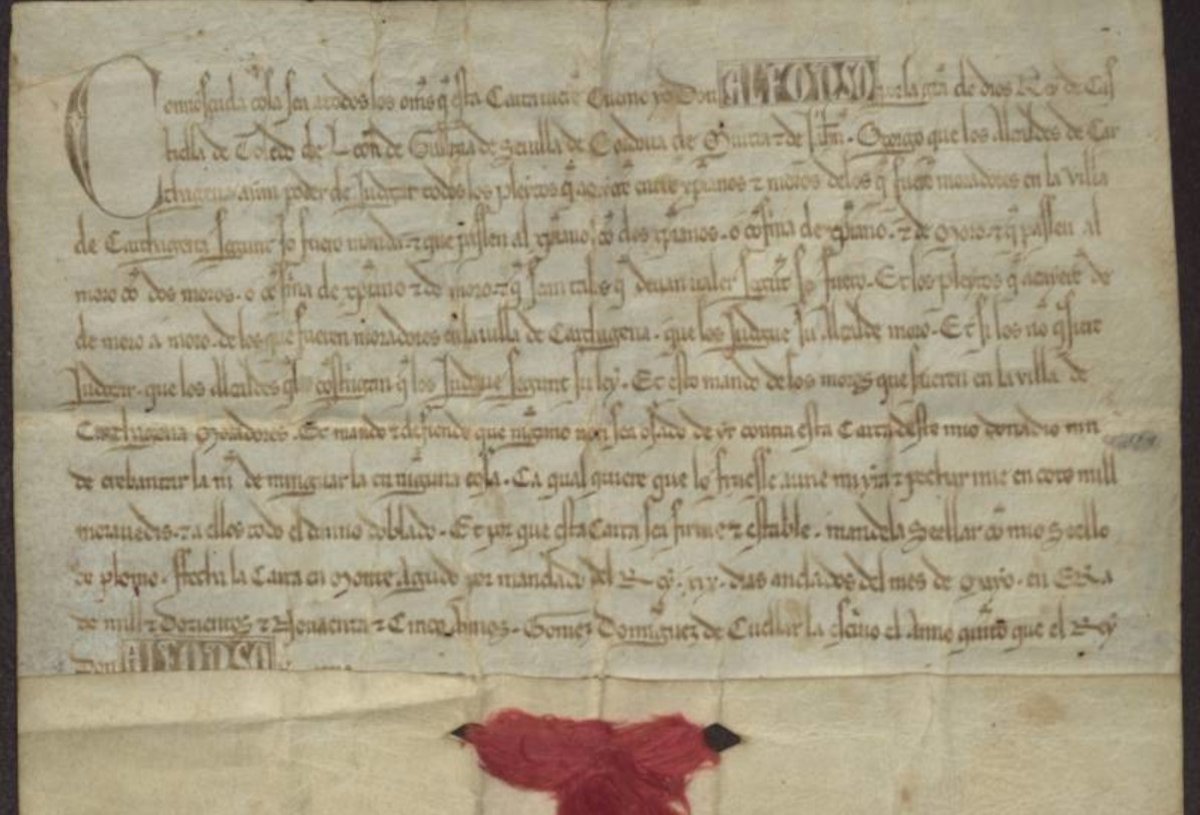 Connosçuda cosa sea a todos los om̃s q̃ esta Carta uierẽ Cuemo yo Don ALFONSO por la grã de dios Rey de Cas
tiella de Toledo de Leon de Gallizia de Seuilla de Cordoua de Murcia ⁊ de Jahẽ. Otorgo que los Alcaldes de Car
thagena ayan poder de Judgar todos los pleytos q̃ acaeçierẽ entre xp̃ianos ⁊ moros delos q̃ fuerẽ moradores en la villa
de Carthagena segunt so fuero manda. ⁊ que passen al xp̃iano cõ dos xp̃ianos. o cõ firma de xp̃iano. ⁊ de Moro. ⁊ q̃ passen al
moro cõ dos moros. o cõ firma de xp̃iano ⁊ de moro. ⁊ q̃ sean tales q̃ deuan ualer segũt so fuero. Et los pleytos q̃ acaecierẽ de
de moro a moro. de los que fueren moradores en la uilla de Carthagena. que los Judgue su Alcalde moro. Et si los nõ q̃siere
Judgar. que los Alcaldes q̃l costringan q̃ los Judgue segunt su ley. Et esto mando de los moros que fueren en la villa de
Carthagena Moradores. Et mando ⁊ defiendo que ninguno non sea osado de yr contra esta Carta deste mio donadio nin
de crebantar la nĩ de minguar la en ninguna cosa. Ca qual quiere que lo fiziesse aurie mi yra ⁊ pechar mie en coto mill
morauedis. ⁊ a ellos todo el danno doblado. Et por que esta Carta sea firme ⁊ estable. mandela Seellar cõ mio Seello
de plomo. ffecha la Carta en Monte Agudo por mandado del Rey. xix. dias andados del mes de Mayo. en Era
de mill ⁊ Dozientos ⁊ Nonaenta ⁊ Cinco Annos. Gomez Dominguez de Cuellar la escriuo el Anno quinto que el Rey
Don ALFONSO